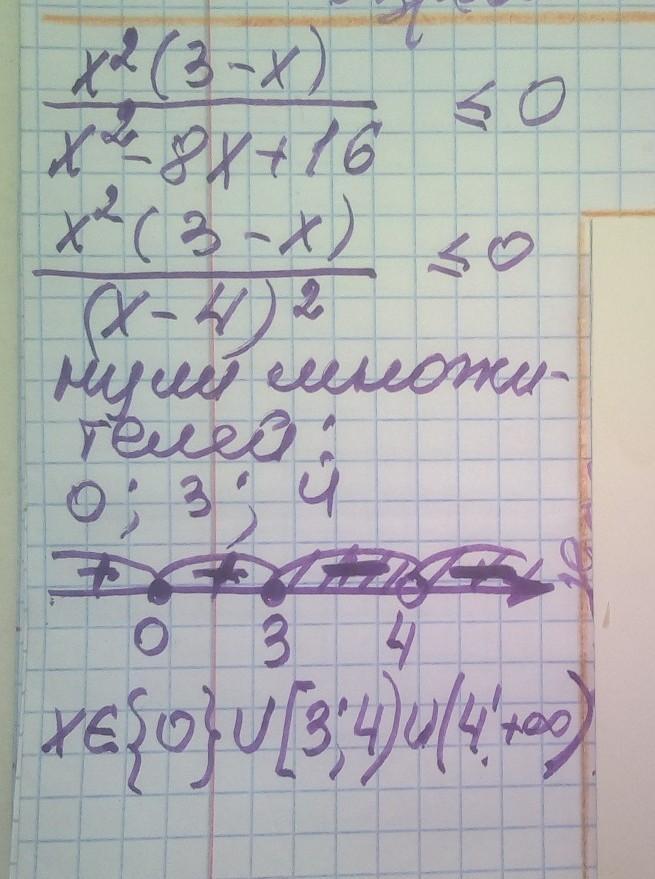 x²(3-x)
x²-8x+16 ≤ 0
x²(3-x)
(x-4)² ≤ 0
нули множи-
телей:
0; 3; 4
+ + - -
0 3 4
x∈{0}∪[3;4)∪(4;+∞)